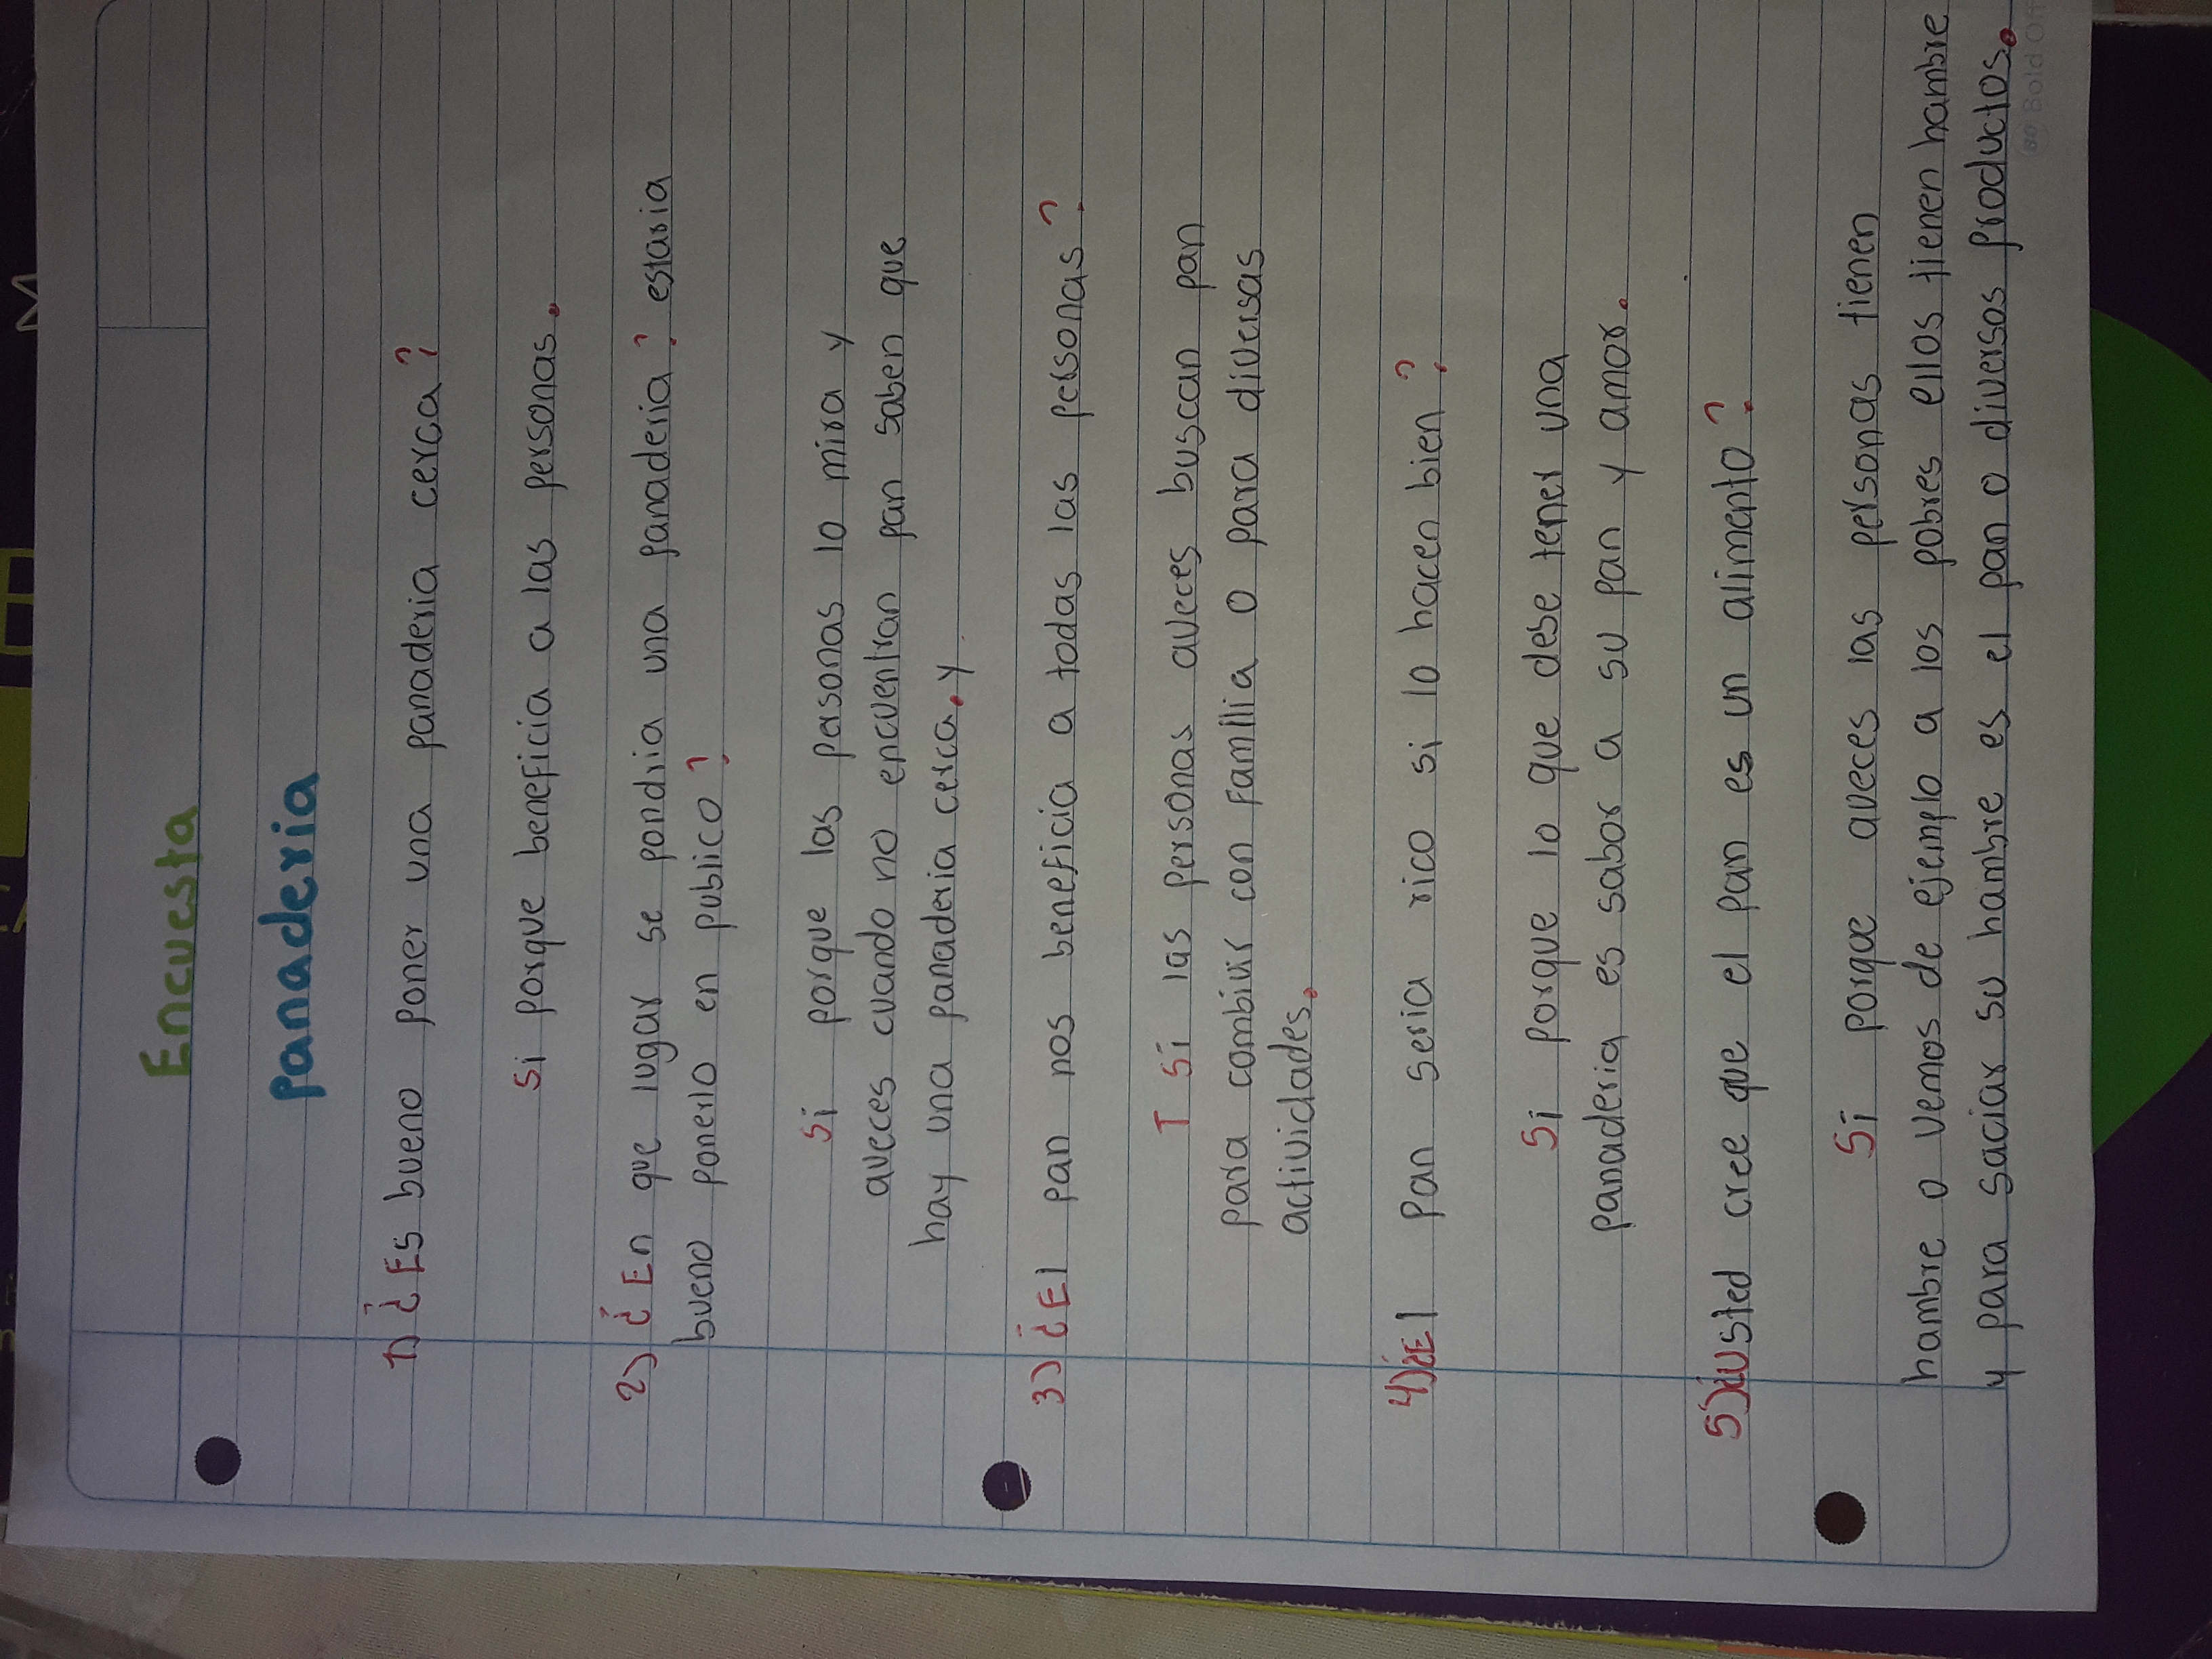 Encuesta
panaderia
1) ¿Es bueno poner una panaderia cerca?
si porque beneficia a las personas.
2) ¿En que lugar se pondria una panaderia? estaria
bueno ponerlo en publico?
si porque las personas lo mira y
aveces cuando no encuentran pan saben que
hay una panaderia cerca. y
3) ¿El pan nos beneficia a todas las personas?
I si las personas aveces buscan pan
para combivir con familia o para diversas
actividades.
4) ¿El Pan seria rico si lo hacen bien?
Si porque lo que dese tener una
panaderia es sabor a su pan y amor.
5) ¿usted cree que el pan es un alimento?
Si porque aveces las personas tienen
hambre o vemos de ejemplo a los pobres ellos tienen hambre
y para saciar su hambre es el pan o diversos productos.
Bold Off